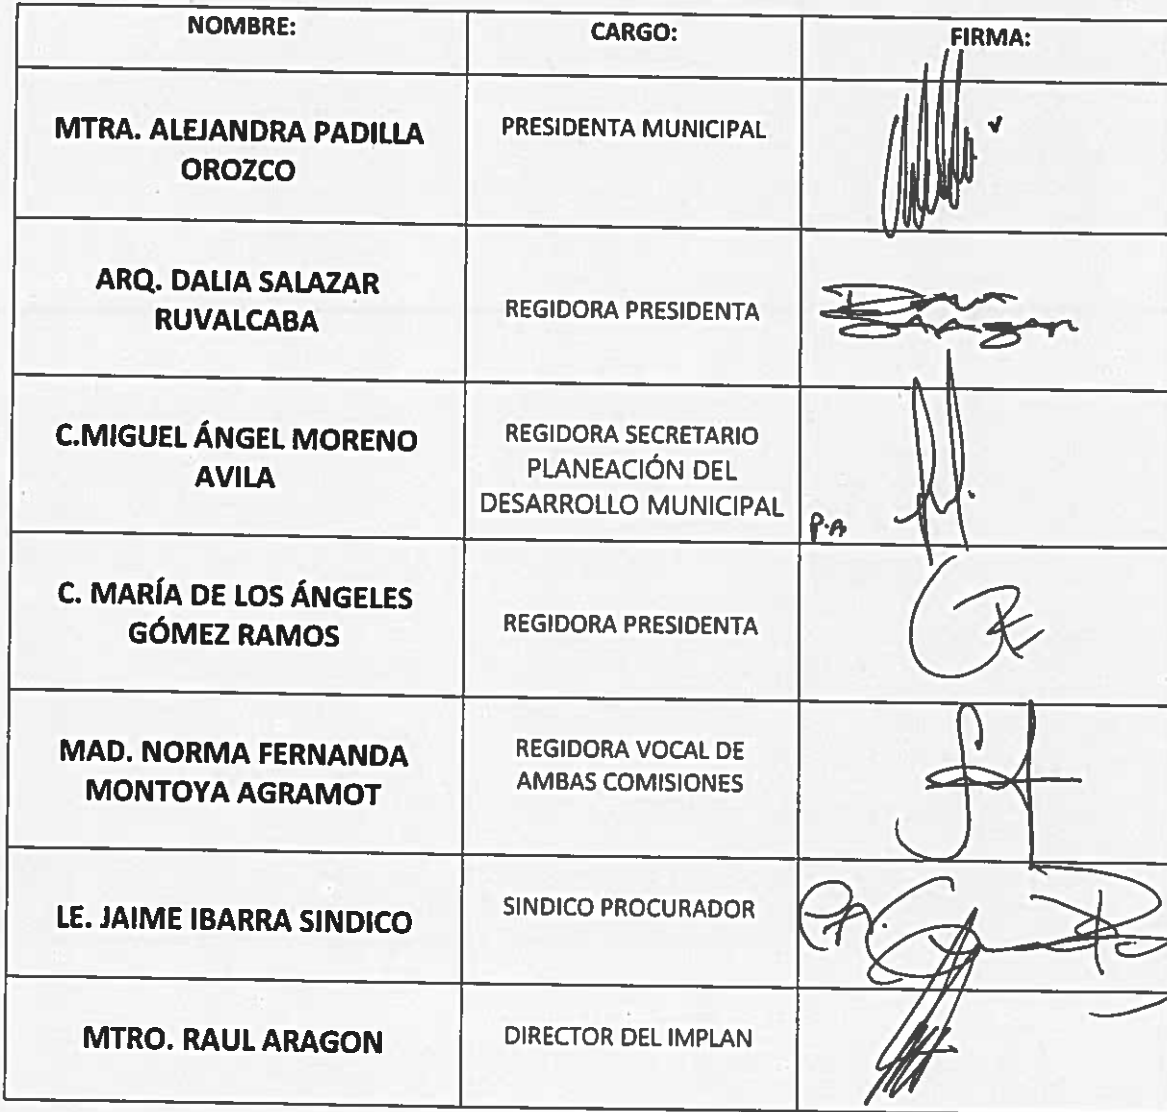 NOMBRE: CARGO: FIRMA:
MTRA. ALEJANDRA PADILLA
OROZCO
PRESIDENTA MUNICIPAL
ARQ. DALIA SALAZAR
RUVALCABA
REGIDORA PRESIDENTA
C.MIGUEL ÁNGEL MORENO
AVILA
REGIDORA SECRETARIO
PLANEACIÓN DEL
DESARROLLO MUNICIPAL
P.A
C. MARÍA DE LOS ÁNGELES
GÓMEZ RAMOS
REGIDORA PRESIDENTA
MAD. NORMA FERNANDA
MONTOYA AGRAMOT
REGIDORA VOCAL DE
AMBAS COMISIONES
LE. JAIME IBARRA SINDICO
SINDICO PROCURADOR
P.A.
MTRO. RAUL ARAGON
DIRECTOR DEL IMPLAN